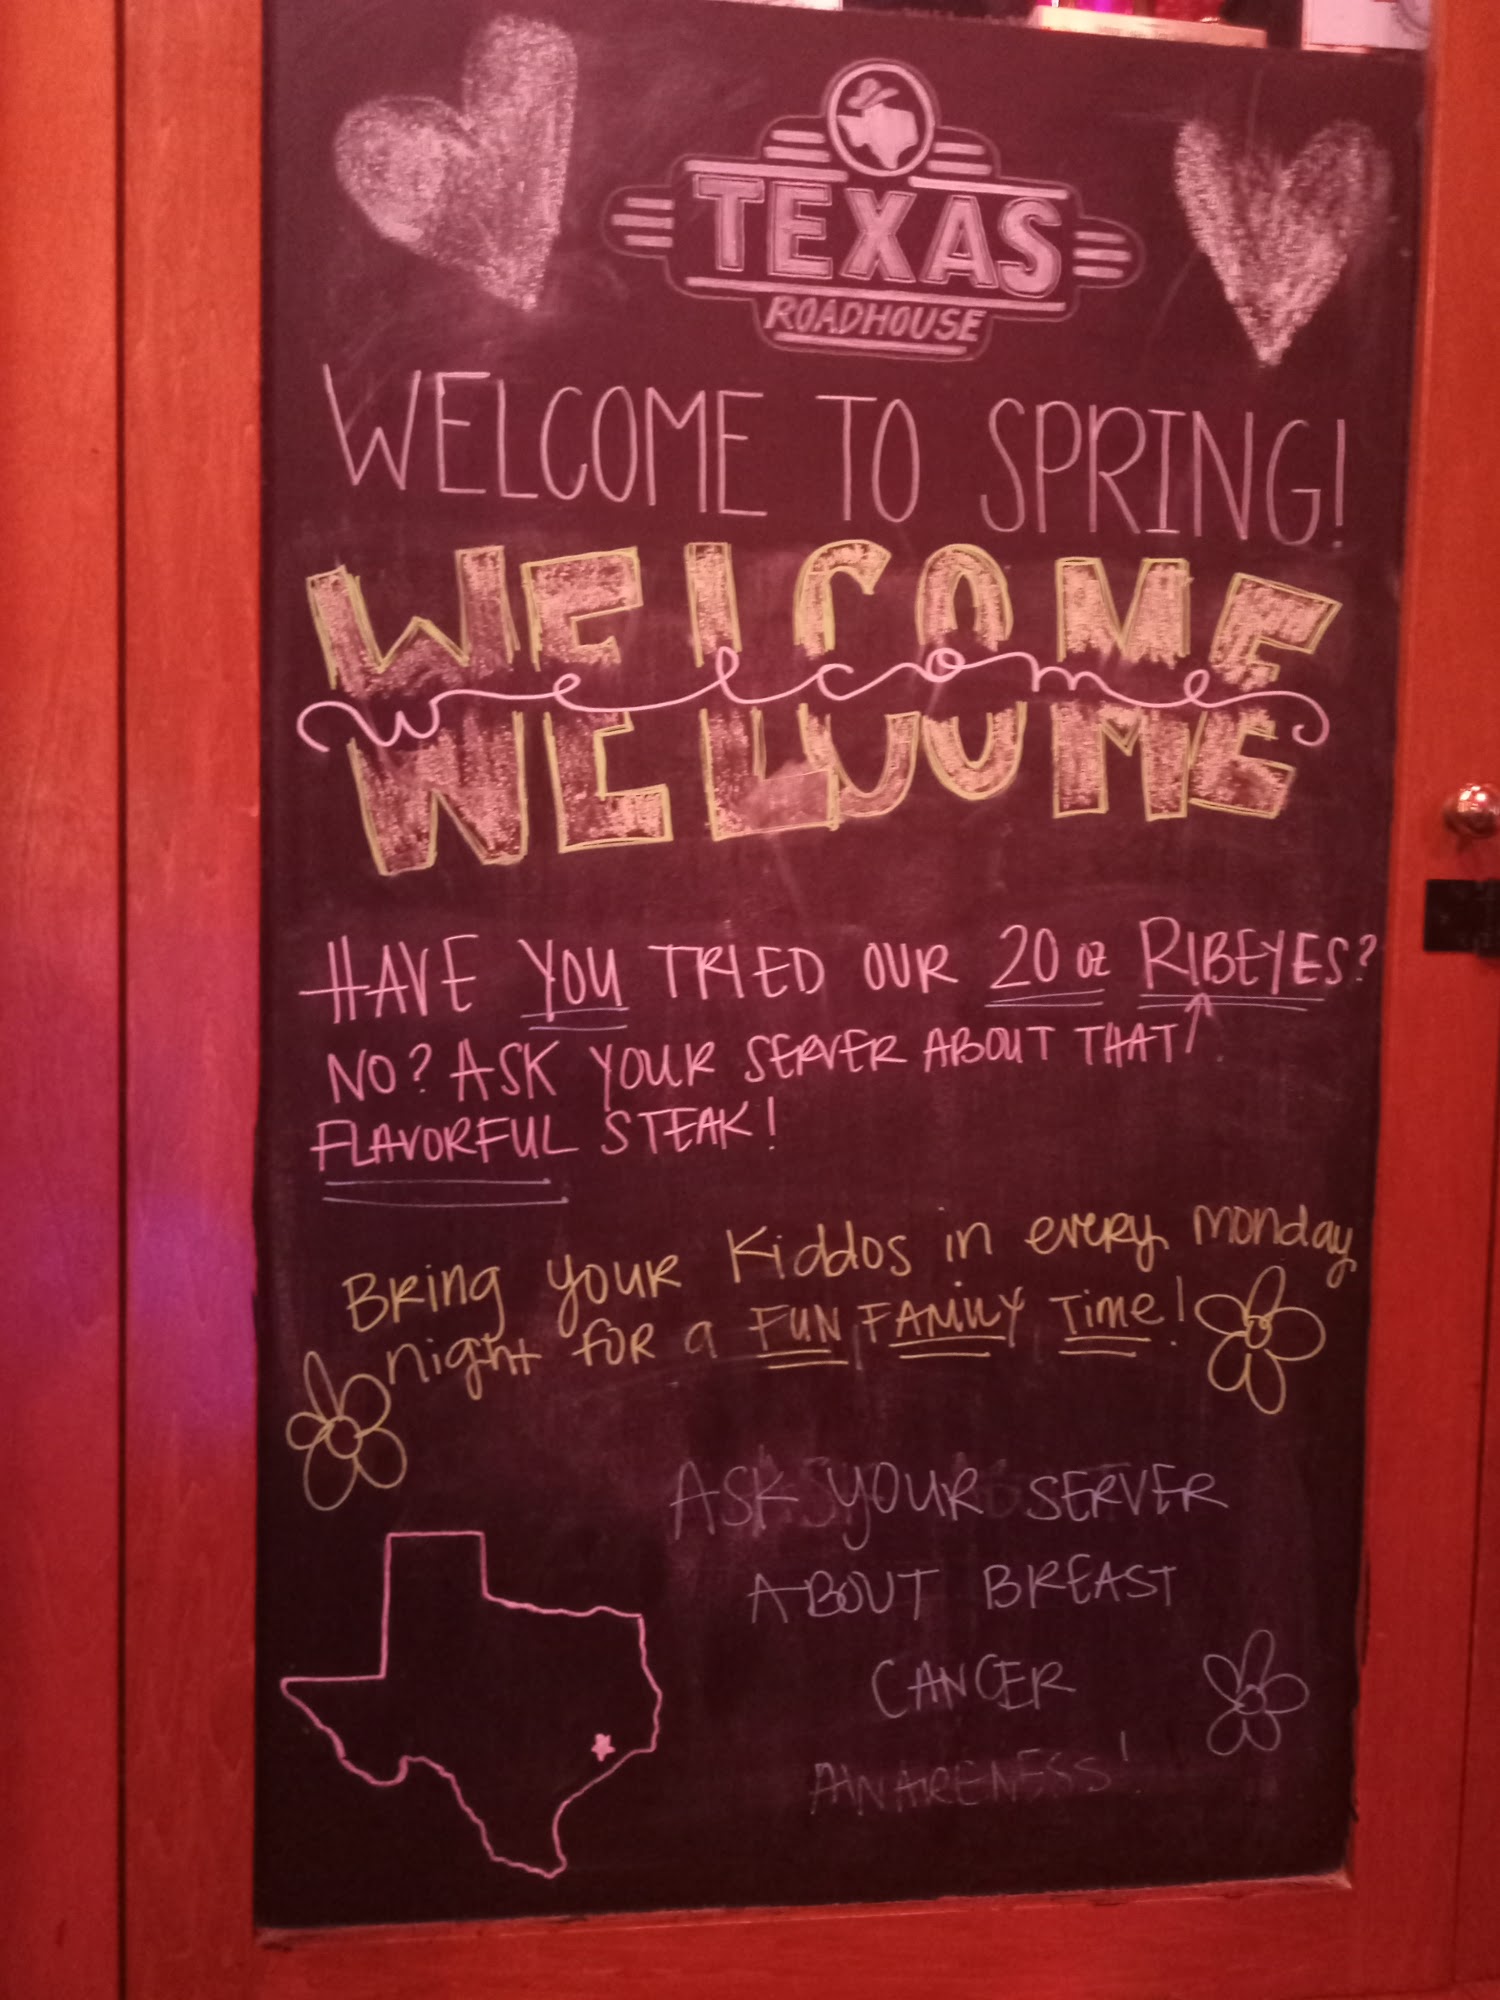 TEXAS
ROADHOUSE
WELCOME TO SPRING!
WELCOME
welcome
WELCOME
HAVE YOU TRIED OUR 20 oz RIBEYES?
NO? ASK YOUR SERVER ABOUT THAT
FLAVORFUL STEAK!
Bring your Kiddos in every monday
night for a FUN FAMILY Time!
ASK YOUR SERVER
ABOUT BREAST
CANCER
AWARENESS!